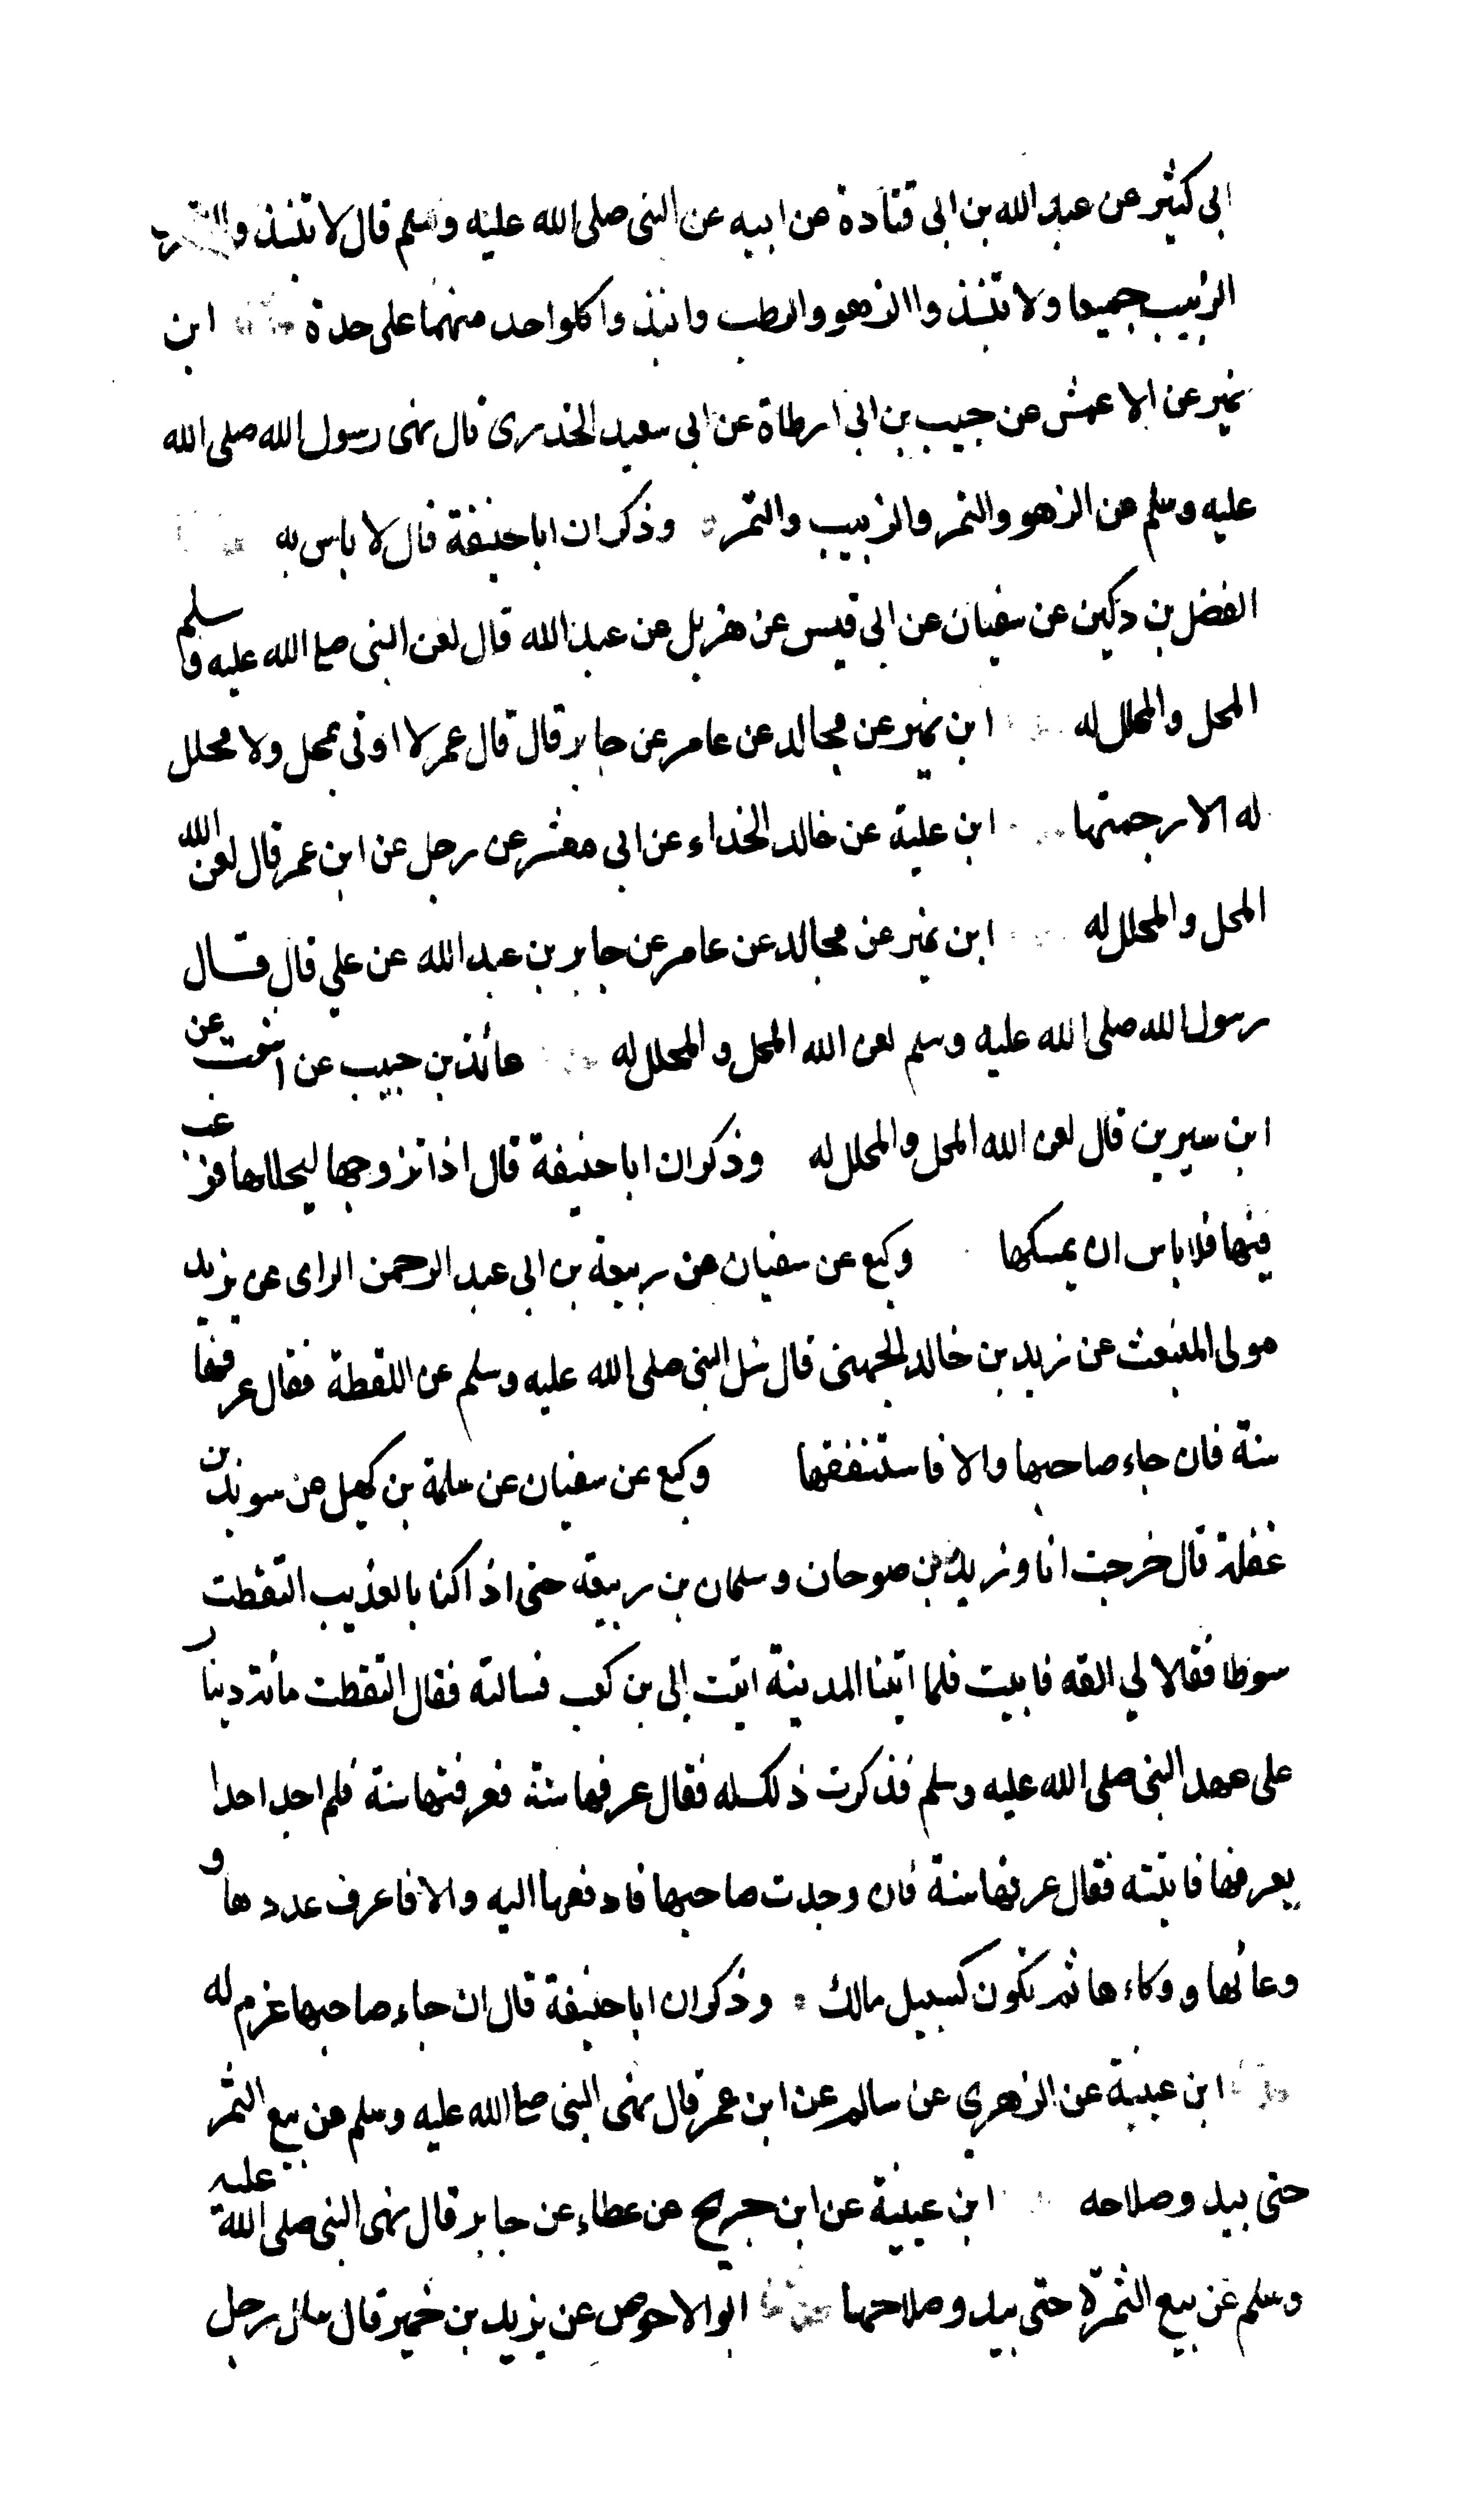 ابى كثير عن عبد الله بن ابى قتادة عن ابيه عن النبى صلى الله عليه وسلم قال لا تنبذوا التمر و
الزبيب جميعا ولا تنبذوا الزهو والرطب وانبذوا كلواحد منهما على حدة ابن
نمير عن الاعمش عن حبيب بن ابى ارطاة عن ابى سعيد الخدرى قال نهى رسول الله صلى الله
عليه وسلم عن الزهو والتمر والزبيب والتمر وذكر ان ابا حنيفة قال لا باس به
الفضل بن دكين عن سفيان عن ابى قيس عن هزيل عن عبد الله قال لعن النبى صلع الله عليه وسلم
المحل والمحلل له ابن نمير عن مجالد عن عامر عن جابر قال قال عمر لا اوتى بمحل ولا محلل
له الا رجمتهما ابن علية عن خالد الحذاء عن ابى معشر عن رجل عن ابن عمر قال لعن الله
المحل والمحلل له ابن نمير عن مجالد عن عامر عن جابر بن عبد الله عن علي قال قال
رسول الله صلى الله عليه وسلم لعن الله المحل والمحلل له عائذ بن حبيب عن اشعث عن
ابن سيرين قال لعن الله المحل والمحلل له وذكر ان ابا حنيفة قال اذا تزوجها ليحللها فرغب
فيها فلا باس ان يمسكها وكيع عن سفيان عن ربيعة بن ابى عبد الرحمن الراى عن يزيد
مولى المنبعث عن زيد بن خالد الجهنى قال سئل النبى صلى الله عليه وسلم عن اللقطة فقال عرفها
سنة فان جاء صاحبها والا فاستنفقها وكيع عن سفيان عن سلمة بن كهيل عن سويد بن
غفلة قال خرجت انا وزيد بن صوحان وسلمان بن ربيعة حتى اذا كنا بالعذيب التقطت
سوطا فقالا لي القه فابيت فلما اتينا المدينة اتيت ابى بن كعب فسالته فقال التقطت مائة دينار
على عهد النبى صلى الله عليه وسلم فذكرت ذلك له فقال عرفها سنة فعرفتها سنة فلم اجد احدا
يعرفها فاتيته فقال عرفها سنة فان وجدت صاحبها فادفعها اليه والا فاعرف عددها و
وعائها ووكاءها ثم تكون كسبيل مالك وذكر ان ابا حنيفة قال ان جاء صاحبها غرم له
ابن عيينة عن الزهري عن سالم عن ابن عمر قال نهى النبى صلع الله عليه وسلم عن بيع الثمر
حتى يبدو صلاحه ابن عيينة عن ابن جريح عن عطاء عن جابر قال نهى النبى صلى الله عليه
وسلم عن بيع الثمرة حتى يبدو صلاحها ابو الاحوص عن يزيد بن خمير قال سال رجل